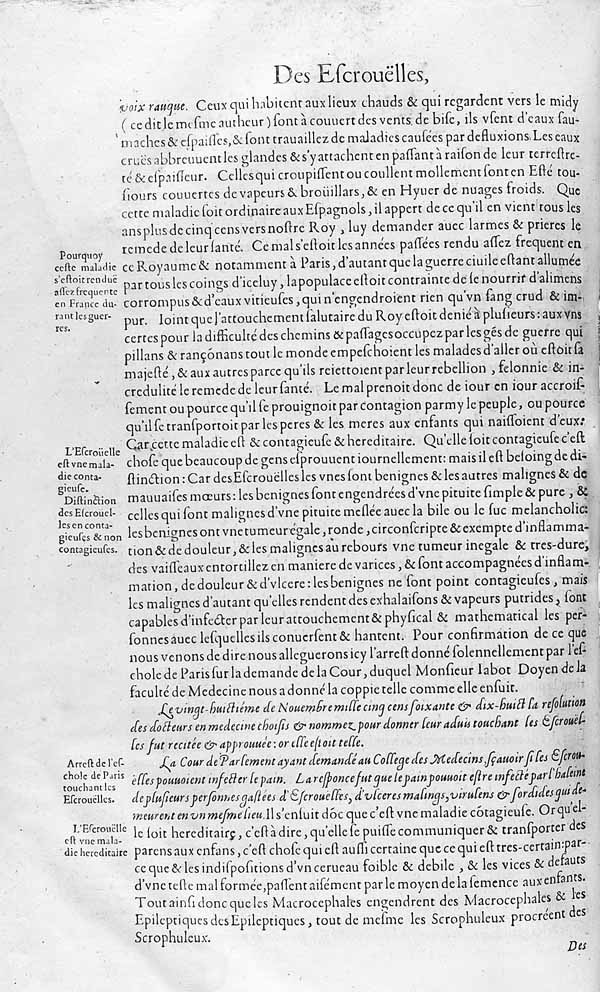 Des Eſcrouëlles,
voix rauque. Ceux qui habitent aux lieux chauds & qui regardent vers le midy
(ce dit le meſme autheur) ſont à couuert des vents de biſe, ils vſent d'eaux ſau-
maches & eſpaiſſes, & ſont trauaillez de maladies cauſées par defluxions. Les eaux
cruës abbreuuent les glandes & s'y attachent en paſſant à raiſon de leur terreſtre-
té & eſpaiſſeur. Celles qui croupiſſent ou coullent mollement ſont en Eſté tou-
ſiours couuertes de vapeurs & broüillars, & en Hyuer de nuages froids. Que
cette maladie ſoit ordinaire aux Eſpagnols, il appert de ce qu'il en vient tous les
ans plus de cinq cens vers noſtre Roy, luy demander auec larmes & prieres le
remede de leur ſanté. Ce mal s'eſtoit les années paſſées rendu aſſez frequent en
ce Royaume & notamment à Paris, d'autant que la guerre ciuile eſtant allumée
par tous les coings d'iceluy, la populace eſtoit contrainte de ſe nourrir d'alimens
corrompus & d'eaux vitieuſes, qui n'engendroient rien qu'vn ſang crud & im-
pur. Ioint que l'attouchement ſalutaire du Roy eſtoit denié à pluſieurs: aux vns
certes pour la difficulté des chemins & paſſages occupez par les gēs de guerre qui
pillans & rançōnans tout le monde empeſchoient les malades d'aller où eſtoit ſa
majeſté, & aux autres parce qu'ils reiettoient par leur rebellion, felonnie & in-
credulité le remede de leur ſanté. Le mal prenoit donc de iour en iour accroiſ-
ſement ou pource qu'il ſe prouignoit par contagion parmy le peuple, ou pource
qu'il ſe tranſportoit par les peres & les meres aux enfants qui naiſſoient d'eux.
Car cette maladie eſt & contagieuſe & hereditaire. Qu'elle ſoit contagieuſe c'eſt
choſe que beaucoup de gens eſprouuent iournellement: mais il eſt beſoing de di-
ſtinction: Car des Eſcroüelles les vnes ſont benignes & les autres malignes & de
mauuaiſes mœurs: les benignes ſont engendrées d'vne pituite ſimple & pure, &
celles qui ſont malignes d'vne pituite meſlée auec la bile ou le ſuc melancholic:
les benignes ont vne tumeur égale, ronde, circonſcripte & exempte d'inflamma-
tion & de douleur, & les malignes au rebours vne tumeur inegale & tres-dure,
des vaiſſeaux entortillez en maniere de varices, & ſont accompagnées d'inflam-
mation, de douleur & d'vlcere: les benignes ne ſont point contagieuſes, mais
les malignes d'autant qu'elles rendent des exhalaiſons & vapeurs putrides, ſont
capables d'infecter par leur attouchement & phyſical & mathematical les per-
ſonnes auec leſquelles ils conuerſent & hantent. Pour confirmation de ce que
nous venons de dire nous alleguerons icy l'arreſt donné ſolennellement par l'eſ-
chole de Paris ſur la demande de la Cour, duquel Monſieur Iabot Doyen de la
faculté de Medecine nous a donné la coppie telle comme elle enſuit.
Le vingt-huictiéme de Nouembre mille cinq cens ſoixante & dix-huict la reſolution
des docteurs en medecine choiſis & nommez pour donner leur aduis touchant les Eſcroüel-
les fut recitée & approuuée: or elle eſtoit telle.
La Cour de Parlement ayant demandé au College des Medecins, ſçauoir ſi les Eſcrou-
ëlles pouuoient infecter le pain. La reſponce fut que le pain pouuoit eſtre infecté par l'haleine
de pluſieurs perſonnes gaſtées d'Eſcroüelles, d'vlceres malings, virulens & ſordides qui de-
meurent en vn meſme lieu. Il s'enſuit dōc que c'eſt vne maladie cōtagieuſe. Or qu'el-
le ſoit hereditaire, c'eſt à dire, qu'elle ſe puiſſe communiquer & tranſporter des
parens aux enfans, c'eſt choſe qui eſt auſſi certaine que ce qui eſt tres-certain: par-
ce que & les indiſpoſitions d'vn cerueau foible & debile, & les vices & defauts
d'vne teſte mal formée, paſſent aiſément par le moyen de la ſemence aux enfants.
Tout ainſi donc que les Macrocephales engendrent des Macrocephales & les
Epileptiques des Epileptiques, tout de meſme les Scrophuleux procréent des
Scrophuleux.
Des
Pourquoy
ceſte maladie
s'eſtoit renduë
aſſez frequente
en France du-
rant les guer-
res.
L'Eſcroüelle
eſt vne mala-
die conta-
gieuſe.
Diſtinction
des Eſcrouel-
les en conta-
gieuſes & non
contagieuſes.
Arreſt de l'eſ-
chole de Paris
touchant les
Eſcroüelles.
L'Eſcroüelle
eſt vne mala-
die hereditaire